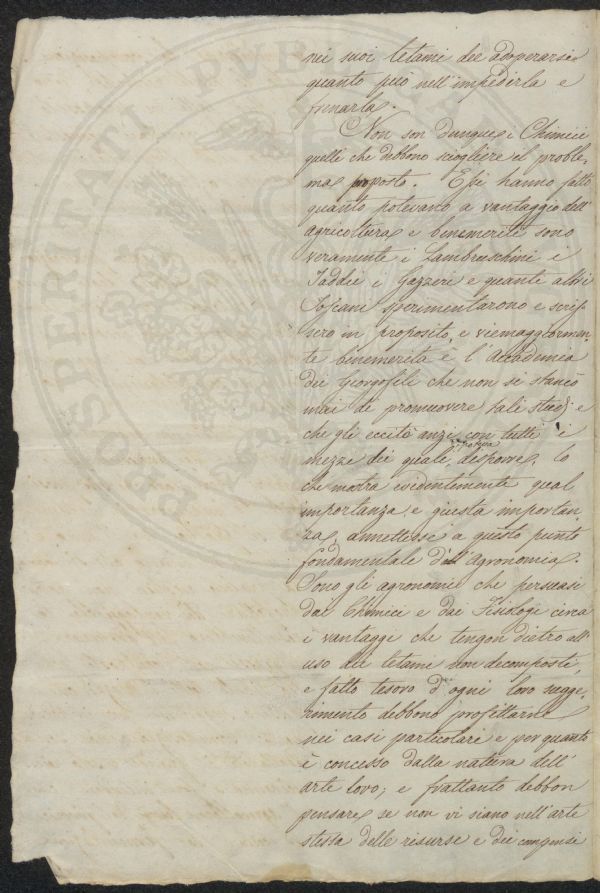 nei suoi letami dee adoperarsi
quanto può nell'impedirla e
frenarla.
Non son dunque i Chimici
quelli che debbono sciogliere il proble,
ma proposto. Essi hanno fatto
quanto potevano a vantaggio dell'
agricoltura e benemeriti sono
veramente i Lambruschini i
Taddei i Gazzeri e quanti altri
Toscani sperimentarono e scris,
sero in proposito, e viemaggiormen,
te benemerita è l'Accademia
dei Georgofili che non si stancò
mai di promuovere tali studj e
che gli eccitò anzi con tutti i
mezzi dei quali poteva disporre. Lo
che mostra evidentemente qual
importanza, e giusta importan
za, annettessi a questo punto
fondamentale dell'Agronomia.
Sono gli agronomi che persuasi
dai Chimici e dai Fisiologi circa
i vantaggi che tengon dietro all'
uso dei letami non decomposti,
e fatto tesoro d'ogni loro sugge,
rimento debbono profittarne
nei casi particolari e per quanto
è concesso dalla natura dell'
arte loro; e frattanto debbon
pensare se non vi siano nell'arte
stessa delle risorse e dei compensi
PROSPERITATI PVBLICAE